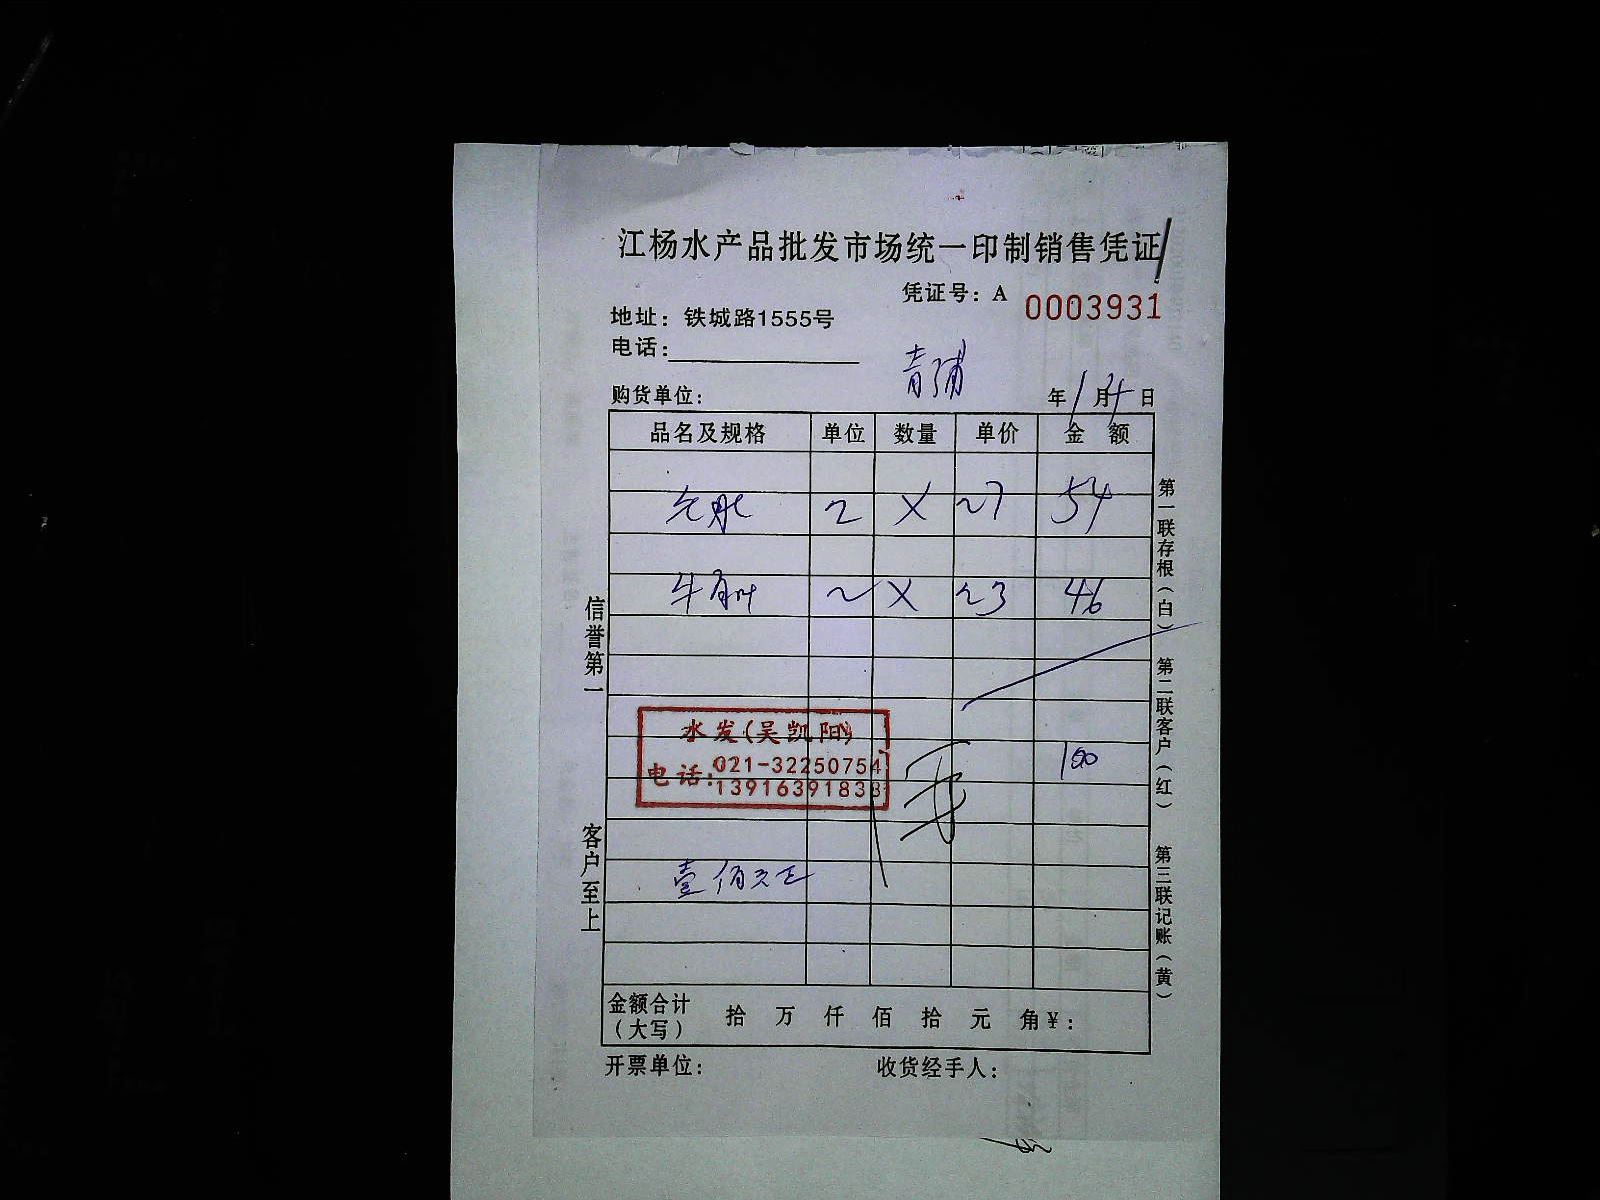 江杨水产品批发市场统一印制销售凭证
凭证号：A 0003931
地址：铁城路1555号
电话：
青浦
购货单位： 年1月 日
品名及规格 单位 数量 单价 金额
2 X 27 54
牛 2 X 23 46
水发(吴凯阳)
电话：021-32250754
13916391838
100
壹佰元正
金额合计（大写） 拾 万 仟 佰 拾 元 角 ¥：
开票单位： 收货经手人：
信誉第一
客户至上
第一联存根（白）
第二联客户（红）
第三联记账（黄）